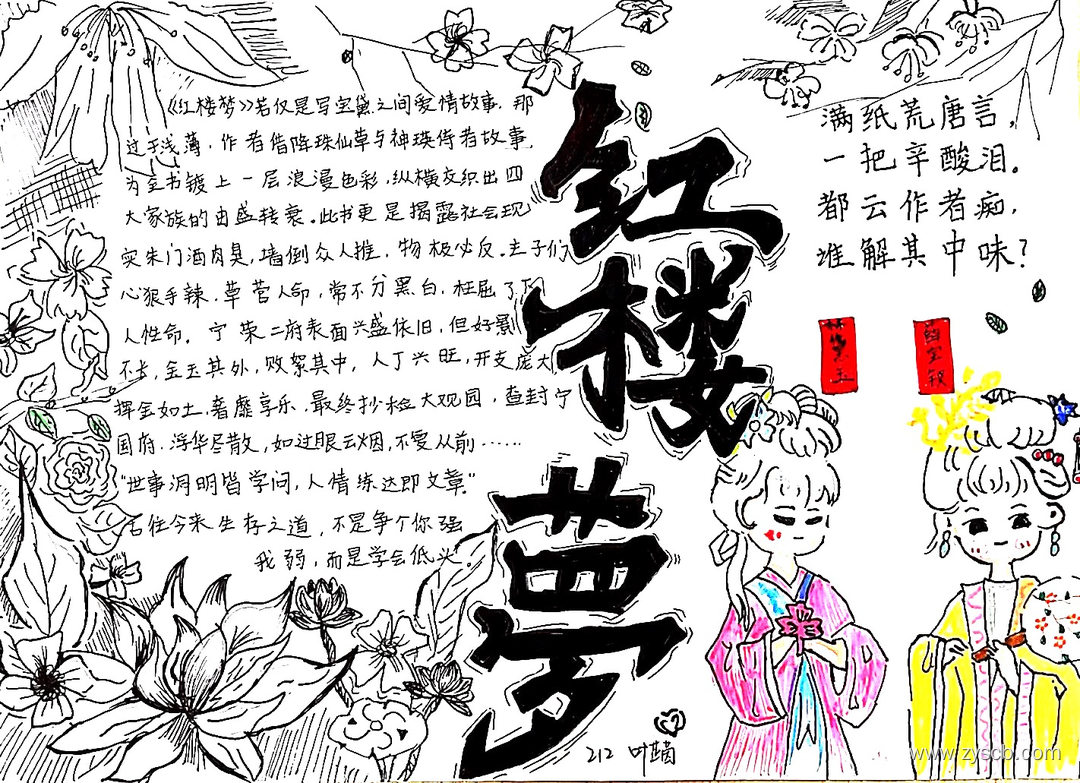 《红楼梦》若仅是写宝黛之间爱情故事，那
过于浅薄，作者借降珠仙草与神瑛侍者故事，
为全书镀上一层浪漫色彩，纵横交织出四
大家族的由盛转衰。此书更是揭露社会现
实朱门酒肉臭，墙倒众人推，物极必反。主子们
心狠手辣，草菅人命，常不分黑白，枉屈了下
人性命。宁荣二府表面兴盛依旧，但好景
不长，金玉其外，败絮其中，人丁兴旺，开支庞大
挥金如土，奢靡享乐，最终抄检大观园，查封宁
国府。浮华尽散，如过眼云烟，不复从前……
“世事洞明皆学问，人情练达即文章。”
古往今来生存之道，不是争个你强
我弱，而是学会低头。
红楼夢
满纸荒唐言，
一把辛酸泪。
都云作者痴，
谁解其中味？
林黛玉
薛宝钗
212 叶
www.zyscb.com